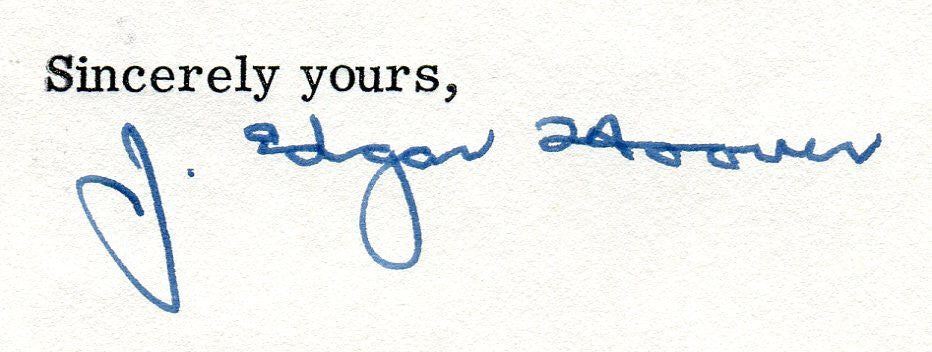 Sincerely yours,
J. Edgar Hoover